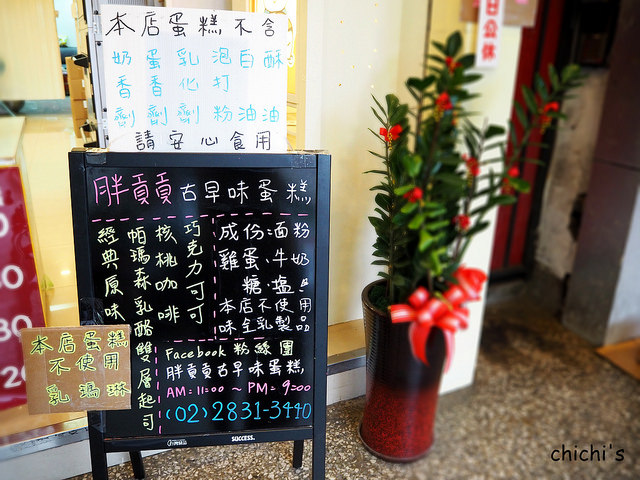 本店蛋糕不含
奶香劑
蛋香劑
乳化劑
泡打粉
白油
酥油
請安心食用
胖貢貢古早味蛋糕
巧克力可可
核桃咖啡
帕瑪森乳酪雙層起司
經典原味
成份:面粉
雞蛋·牛奶
糖·塩
本店不使用
味全乳製品
Facebook 粉絲團
胖貢貢古早味蛋糕
AM:11:00 ~ PM:9:00
(02)2831-3440
SUCCESS.
本店蛋糕
不使用
乳瑪琳
日公休
chichi's